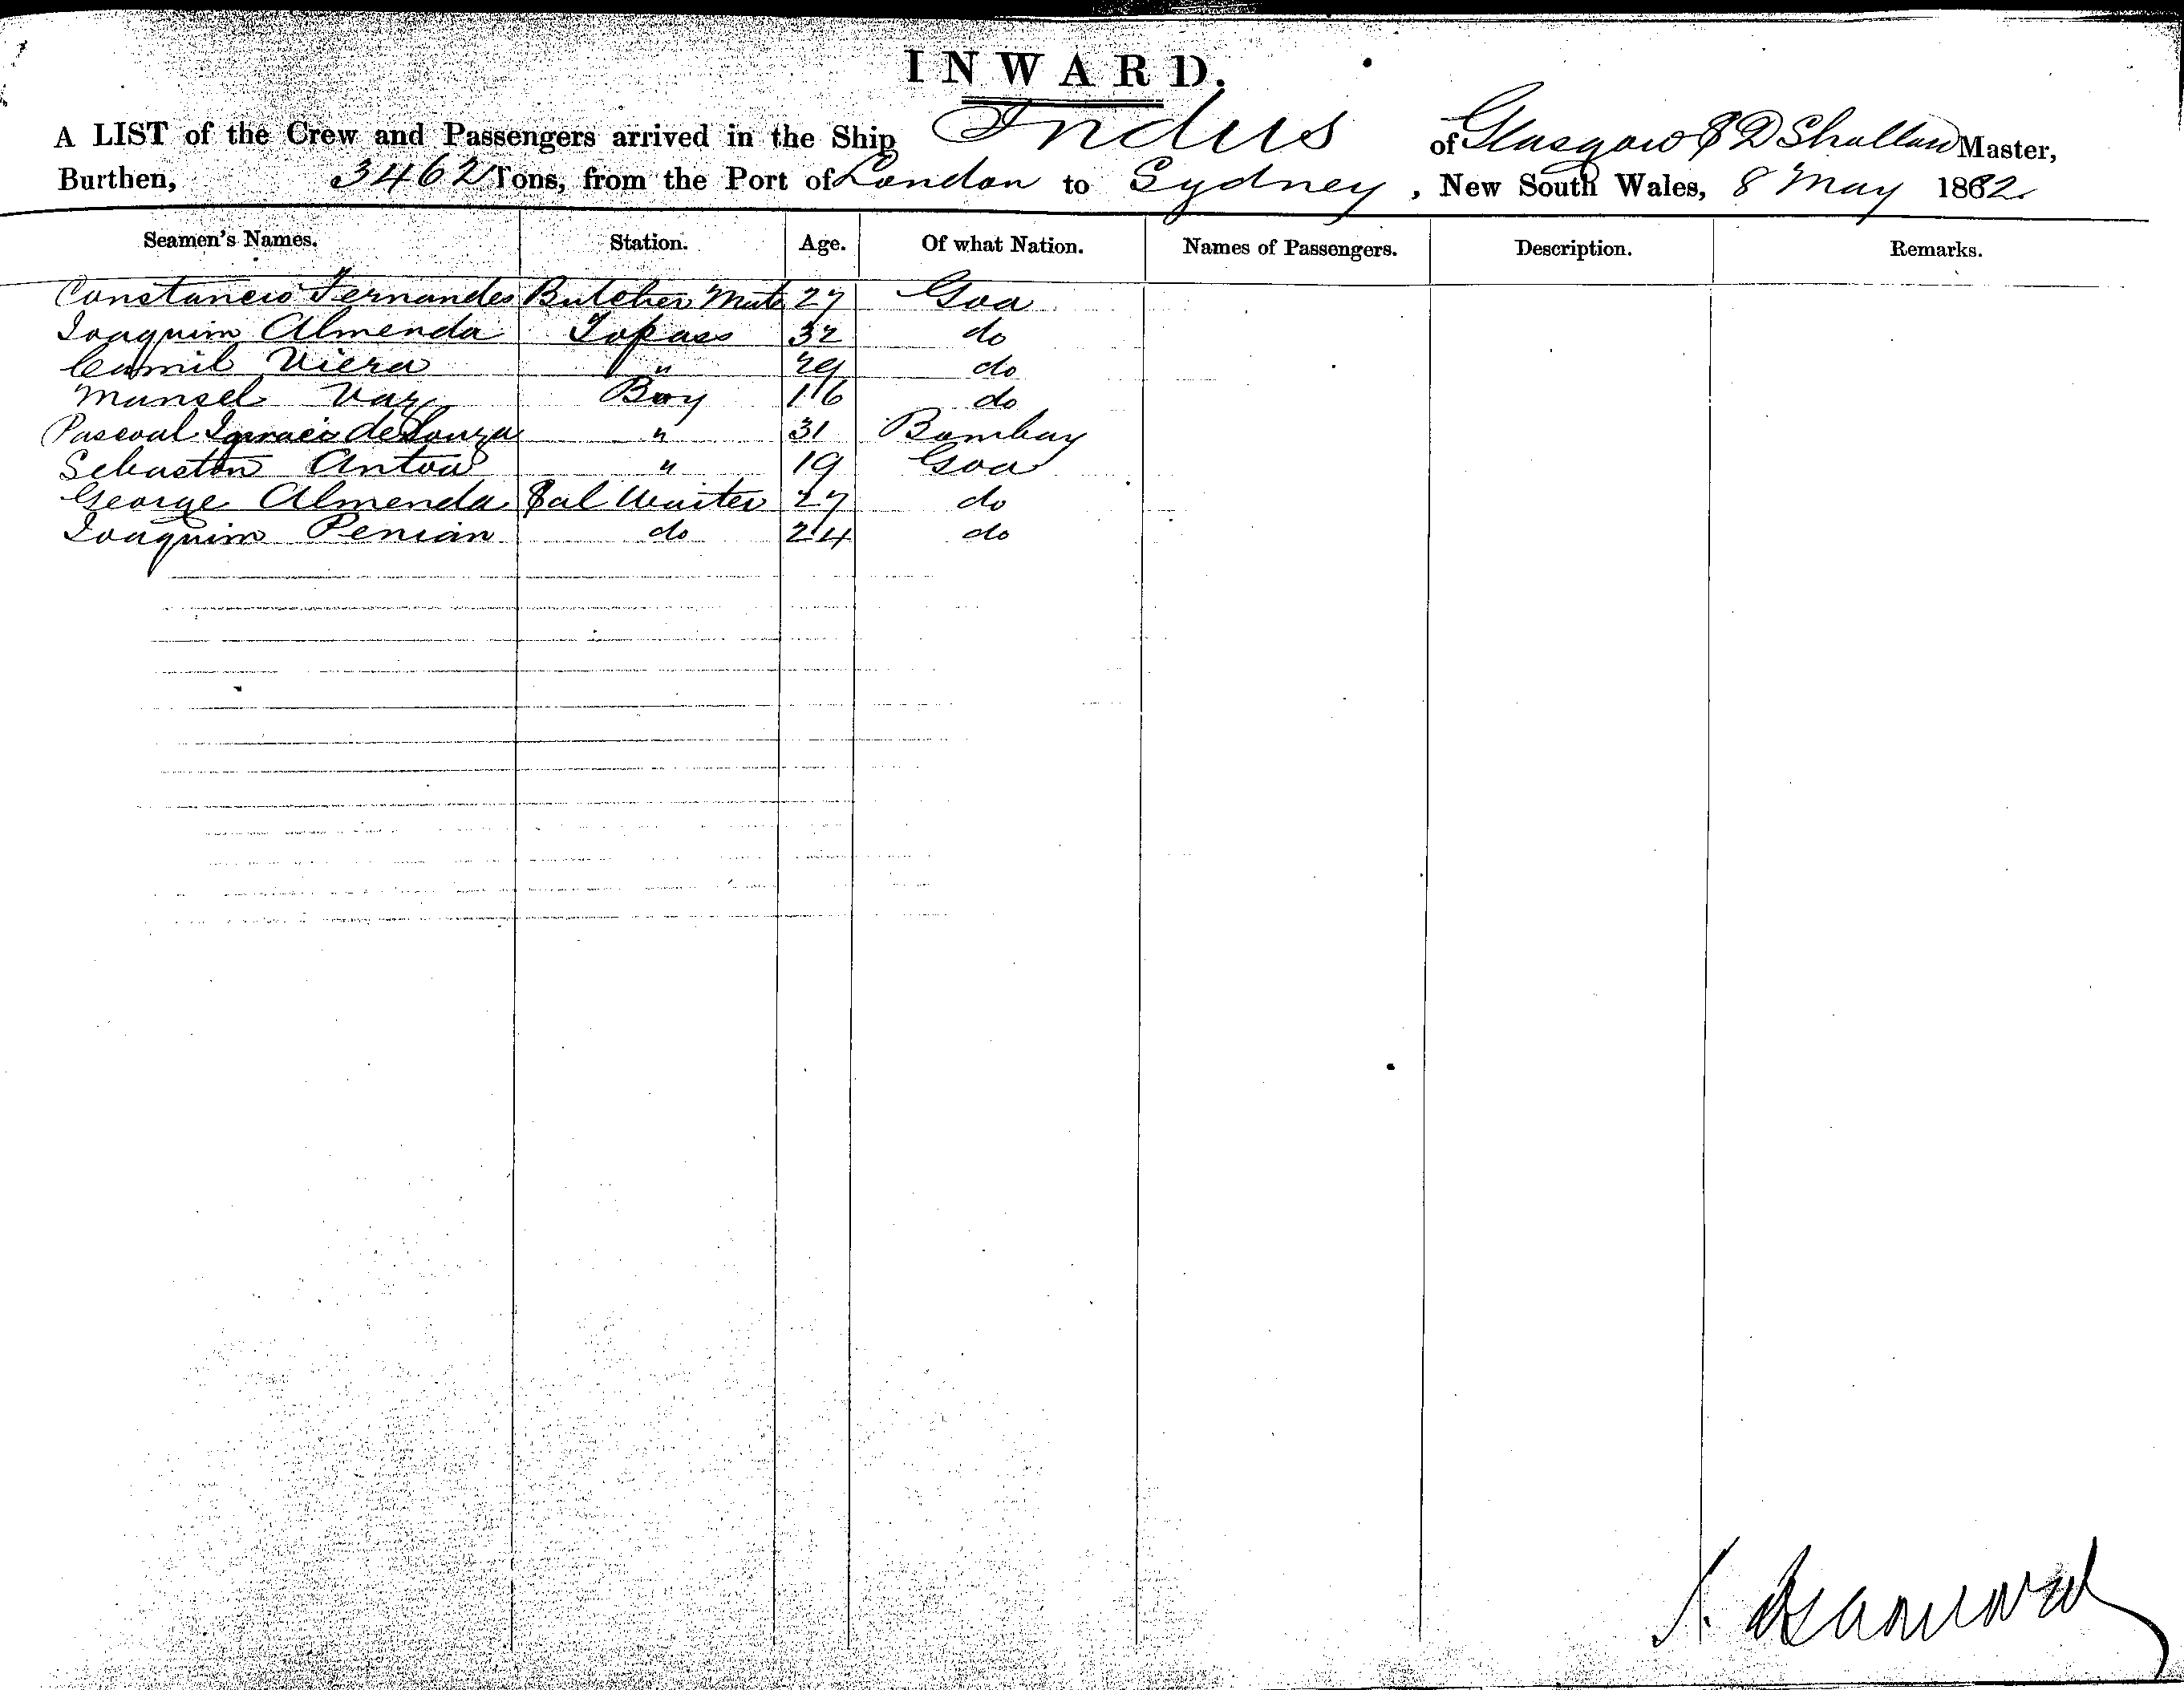 INWARD.
A LIST of the Crew and Passengers arrived in the Ship Indus of Glasgow Master,
Burthen, 3462 Tons, from the Port of London to Sydney, New South Wales, 8 May 1882.
Seamen's Names. Station. Age. Of what Nation. Names of Passengers. Description. Remarks.
Constancio Fernandes Butcher Mate 27 Goa
Joaquim Almenda Topass 32 do
Camil Viera " 29 do
Mansel Vaz Boy 16 do
Pascoal Ignacio de Souza " 31 Bombay
Sebastin Antoa " 19 Goa
George Almenda Sal Waiter 27 do
Joaquim 24 do do